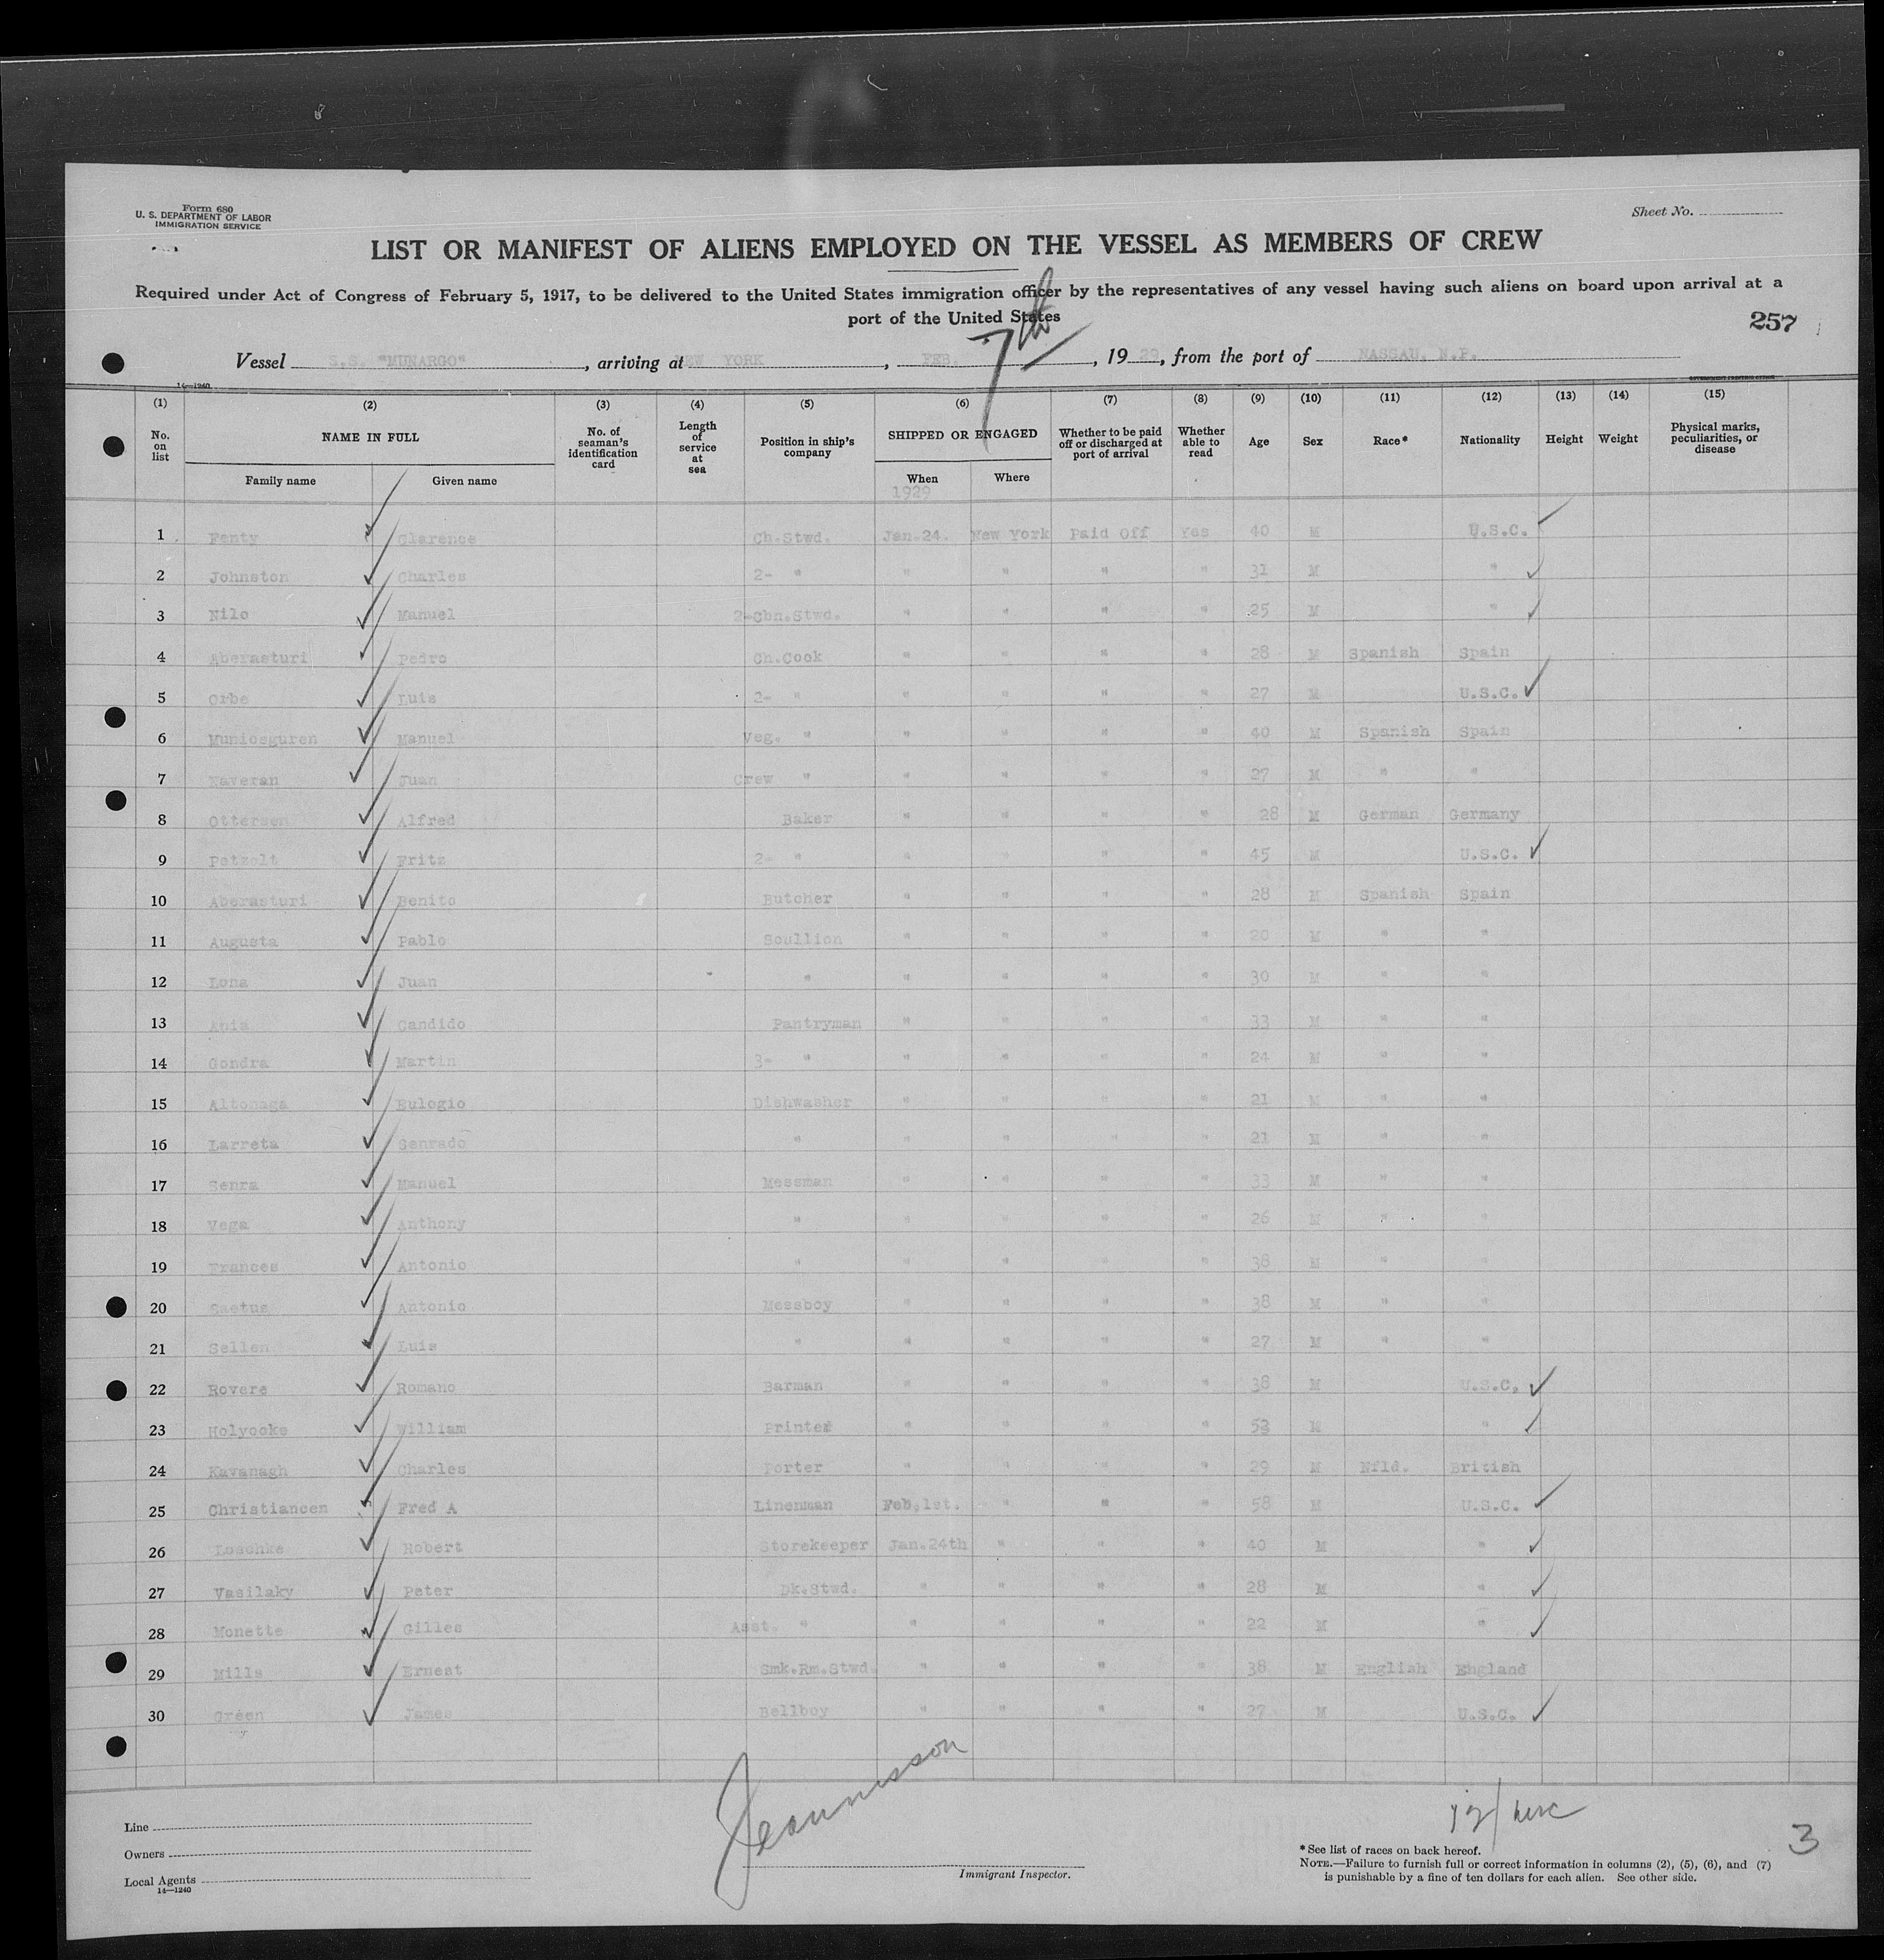 Form 680
U. S. DEPARTMENT OF LABOR
IMMIGRATION SERVICE
Sheet No.
LIST OR MANIFEST OF ALIENS EMPLOYED ON THE VESSEL AS MEMBERS OF CREW
Required under Act of Congress of February 5, 1917, to be delivered to the United States immigration officer by the representatives of any vessel having such aliens on board upon arrival at a
port of the United States
257
Vessel S.S. "MUNARGO", arriving at NEW YORK, FEB. 7th, 1929, from the port of NASSAU. N.P.
14—1240
(1) (2) (3) (4) (5) (6) (7) (8) (9) (10) (11) (12) (13) (14) (15)
No. on list NAME IN FULL No. of seaman's identification card Length of service at sea Position in ship's company SHIPPED OR ENGAGED Whether to be paid off or discharged at port of arrival Whether able to read Age Sex Race* Nationality Height Weight Physical marks, peculiarities, or disease
Family name Given name When Where
1929
1 Fenty Clarence Ch.Stwd. Jan.24. New York Paid Off Yes 40 M U.S.C.
2 Johnston Charles 2- " " " " " 31 M "
3 Nilo Manuel 2-Cbn.Stwd. " " " " 25 M "
4 Aberasturi Pedro Ch.Cook " " " " 28 M Spanish Spain
5 Orbe Luis 2- " " " " " 27 M U.S.C.
6 Muniosguren Manuel Veg. " " " " " 40 M Spanish Spain
7 Juan Crew " " " " " 27 M " "
8 Ottersen Alfred Baker " " " " 28 M German Germany
9 Petzolt Fritz 2- " " " " " 45 M U.S.C.
10 Aberasturi Benito Butcher " " " " 28 M Spanish Spain
11 Augusta Pablo Scullion " " " " 20 M " "
12 Lona Juan " " " " " 30 M " "
13 Candido Pantryman " " " " 33 M " "
14 Gondra Martin 3- " " " " " 24 M " "
15 Altonaga Eulogio Dishwasher " " " " 21 M " "
16 Larreta Senrado " " " " " 21 M " "
17 Senra Manuel Messman " " " " 33 M " "
18 Vega Anthony " " " " " 26 M " "
19 Frances Antonio " " " " " 38 M " "
20 Saetus Antonio Messboy " " " " 38 M " "
21 Sellen Luis " " " " " 27 M " "
22 Rovere Romano Barman " " " " 38 M U.S.C.
23 Holyocke William Printer " " " " 53 M "
24 Kavanagh Charles Porter " " " " 29 M Nfld. British
25 Christiancen Fred A Linenman Feb.1st. " " " 58 M U.S.C.
26 Loschke Robert Storekeeper Jan.24th " " " 40 M "
27 Vasilaky Peter Dk.Stwd. " " " " 28 M "
28 Monette Gilles Asst. " " " " " 22 M "
29 Mills Ernest Smk.Rm.Stwd. " " " " 38 M English England
30 Green James Bellboy " " " " 27 M U.S.C.
Line
Owners
Local Agents
14—1240
Immigrant Inspector.
*See list of races on back hereof.
NOTE.—Failure to furnish full or correct information in columns (2), (5), (6), and (7)
is punishable by a fine of ten dollars for each alien. See other side.
3